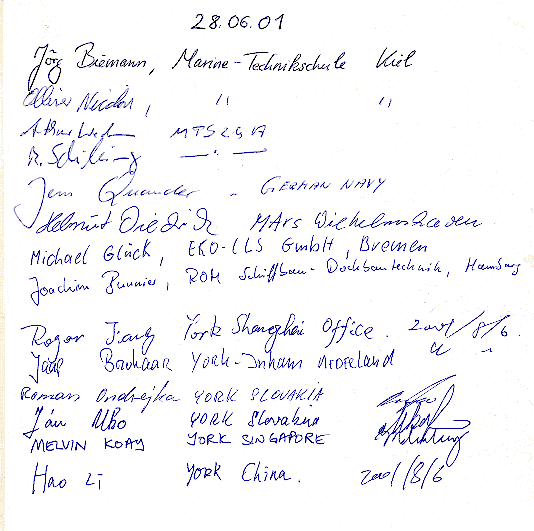 28.06.01
Jörg Biemann, Marine-Technikschule Kiel
" "
MTS 2 G 17
R. Schilling — " —
Jens Quander - GERMAN NAVY
Helmut Diedrich MArs Wilhelmshaven
Michael Glück, EKO-LLS GmbH, Bremen
Joachim ROM Schiffbau- Dockbautechnik, Hamburg
Roger Jiang York Shanghai Office. 2001/8/6.
Jaap YORK-Inham NEDERLAND " "
Roman Ondrejka YORK SLOVAKIA
Ján YORK Slovakia
MELVIN KOAY YORK SINGAPORE
Hao Li York China. 2001/8/6